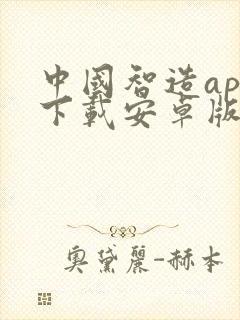 中國智造ap
下載安卓版
奧黛麗-赫本